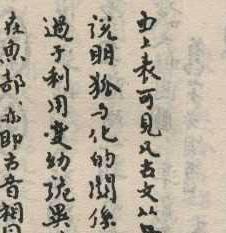 由上表可見凡古文从
說明狐与化的關係
過于利用变幼詭異
在魚部亦即古音相同